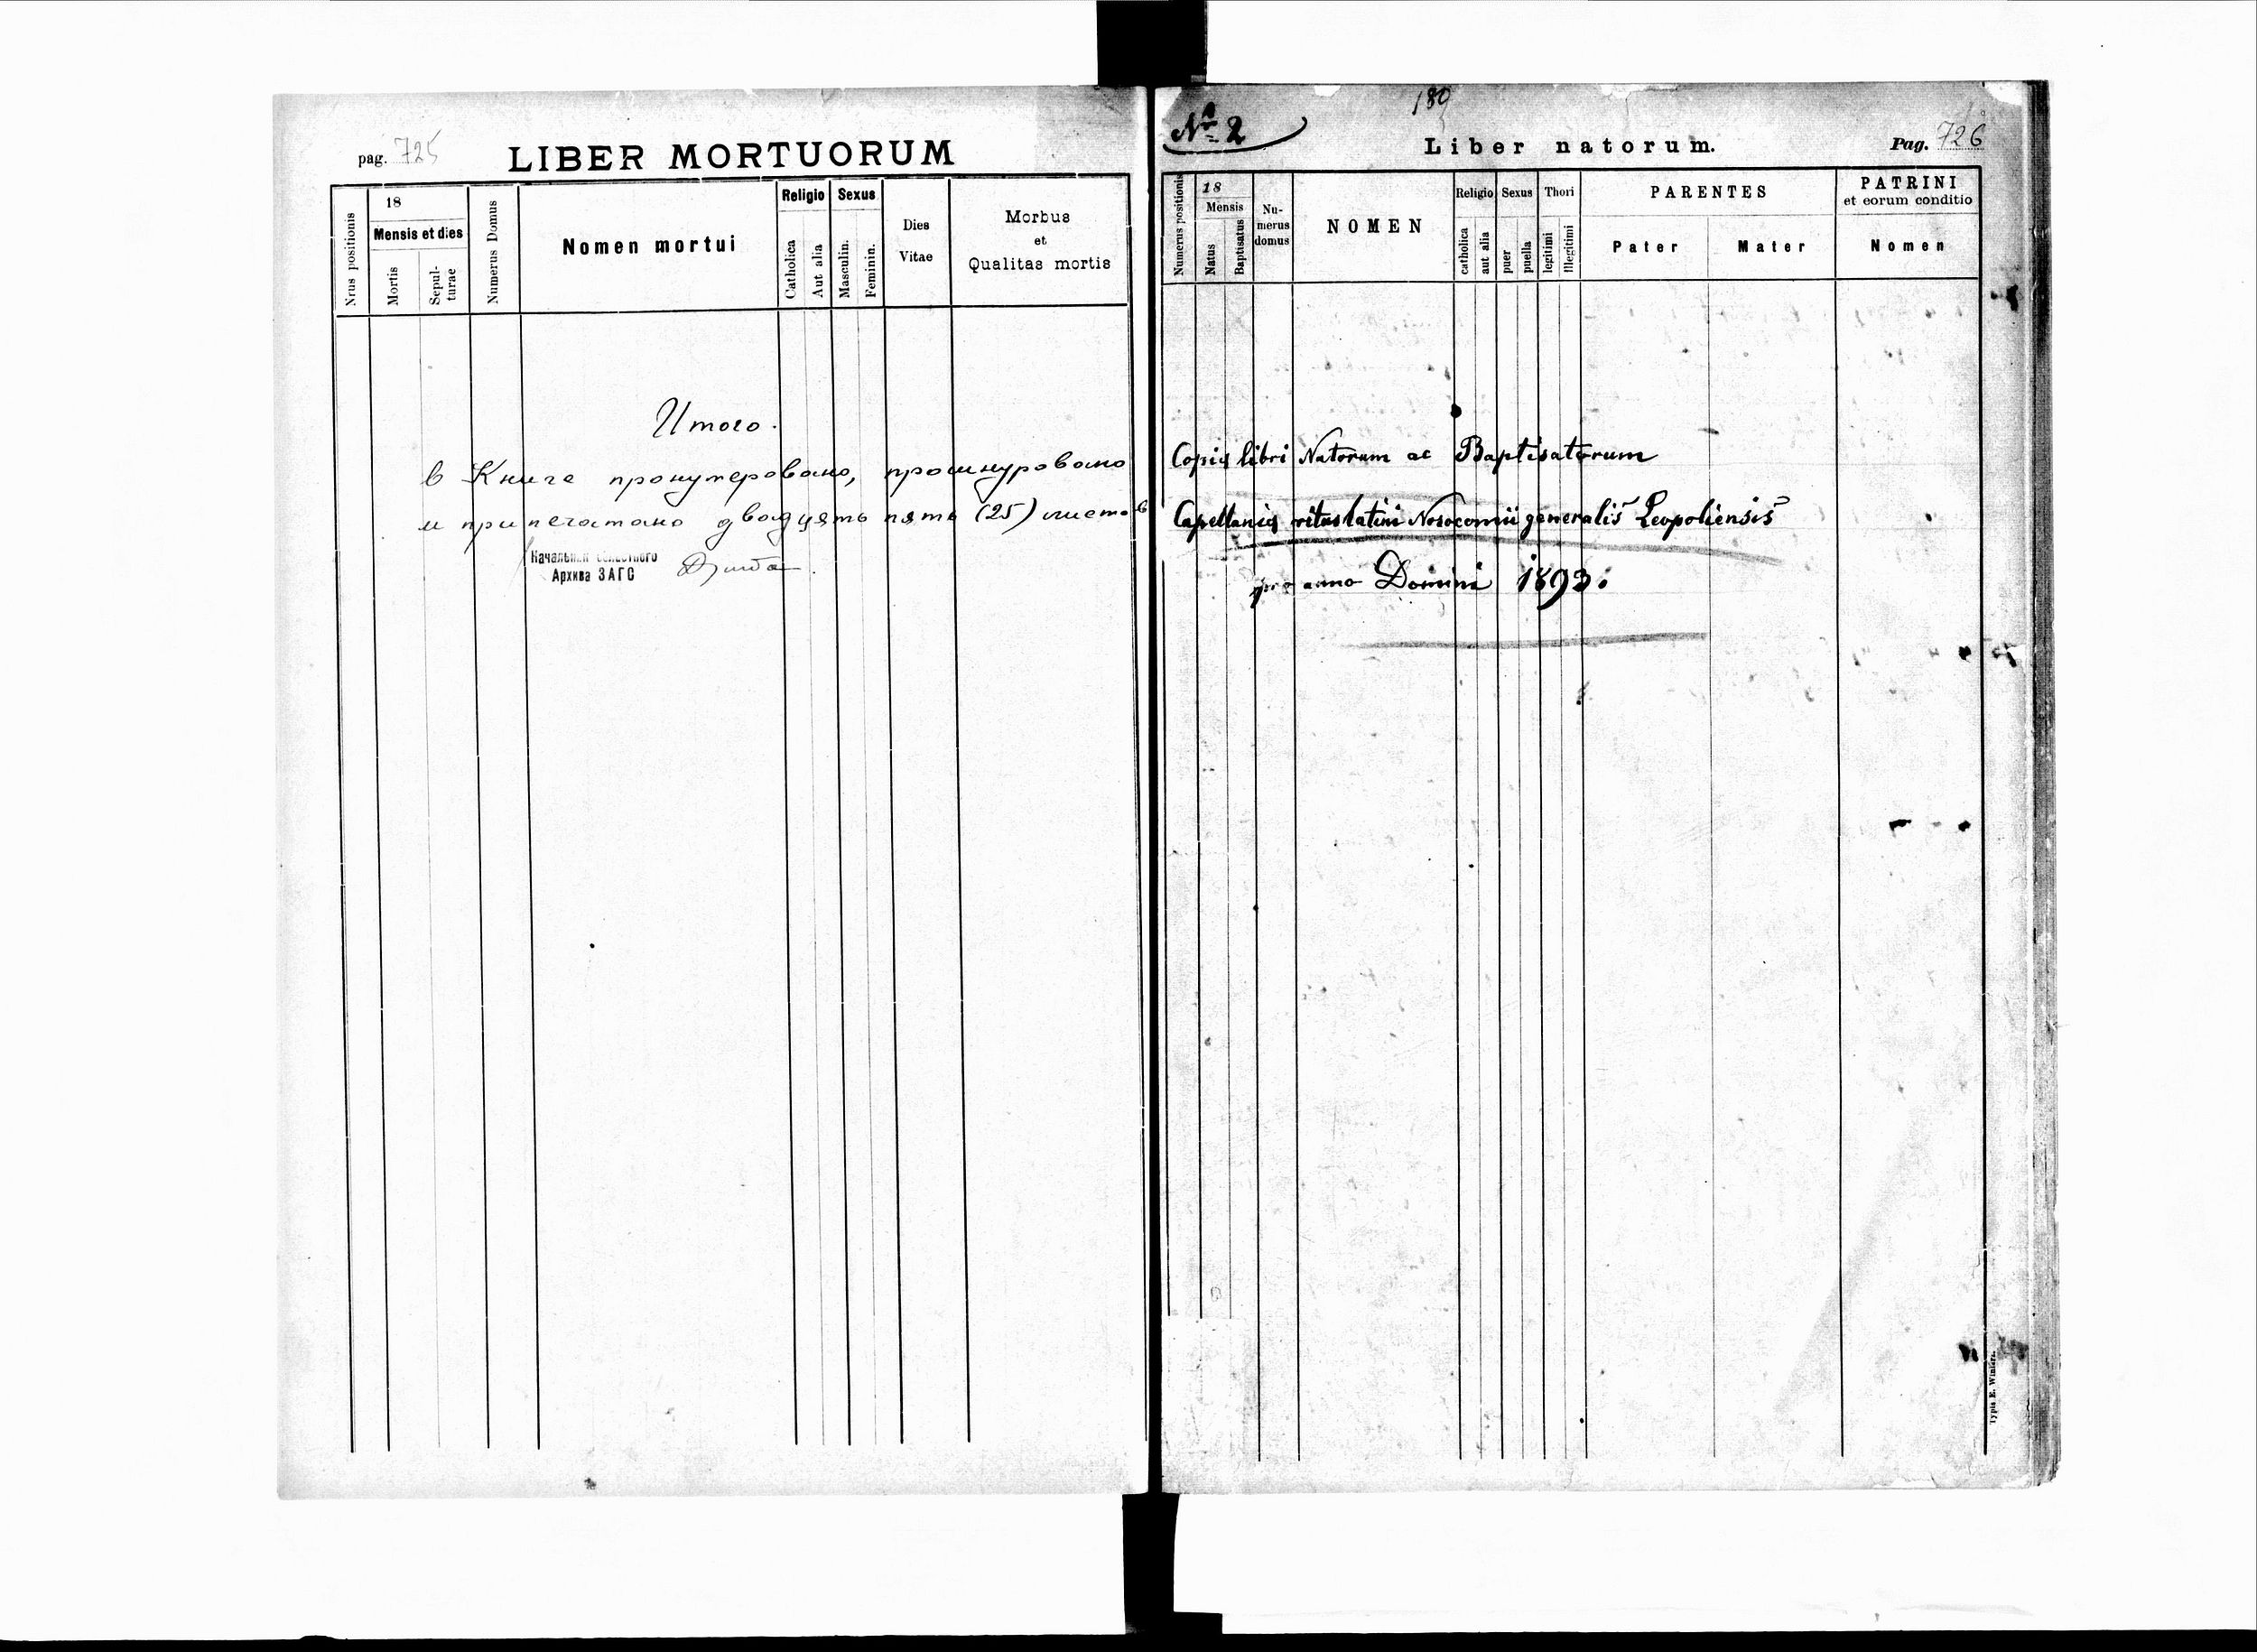 pag. 725
LIBER MORTUORUM
Nrus positionis
18
Mensis et dies
Mortis
Sepul-
turae
Numerus Domus
Nomen mortui
Religio
Catholica
Aut alia
Sexus
Masculin.
Feminin.
Dies
Vitae
Morbus
et
Qualitas mortis
Итого.
в Книге пронумеровано, прошнуровано
и припечатано двадцять пять (25) листов
Архива ЗАГС
№ 2
180
Liber natorum.
Pag. 726
Numerus positionis
18
Mensis
Natus
Baptisatus
Nu-
merus
domus
NOMEN
Religio
catholica
aut alia
Sexus
puer
puella
Thori
legitimi
Illegitimi
PARENTES
Pater
Mater
PATRINI
et eorum conditio
Nomen
Copia libri Natorum ac Baptisatorum
Capellania ritus latini Nosocomii generalis Leopoliensis
pro anno Domini 1893.
Typis E. Winiarz.